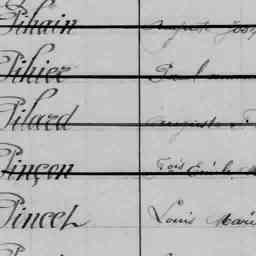 Pihain Auguste Jose
Pihier Paul
Pilard Auguste
Pinçon Fois Emile
Pincet Louis Marie